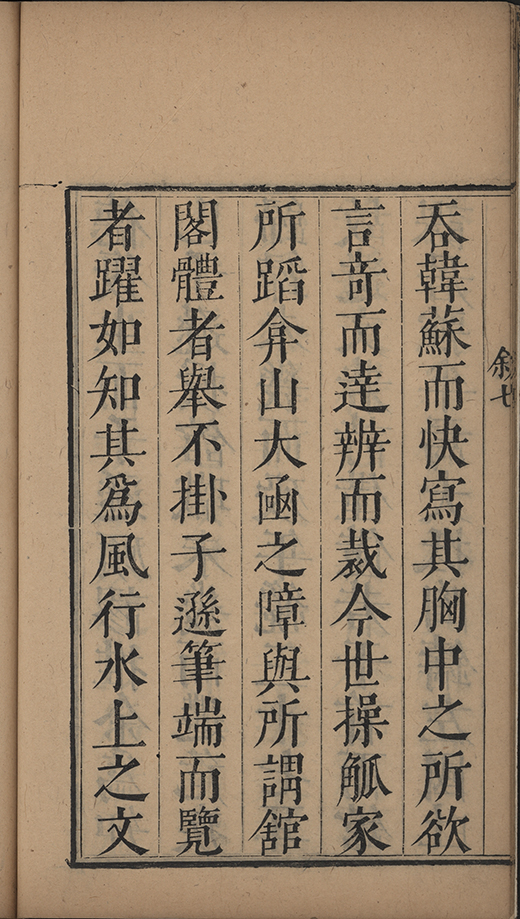 敘七
吞韓蘇而快寫其胸中之所欲
言竒而達辨而裁今世操觚家
所蹈弇山大函之障與所謂舘
閣體者舉不掛子遜筆端而覽
者躍如知其爲風行水上之文